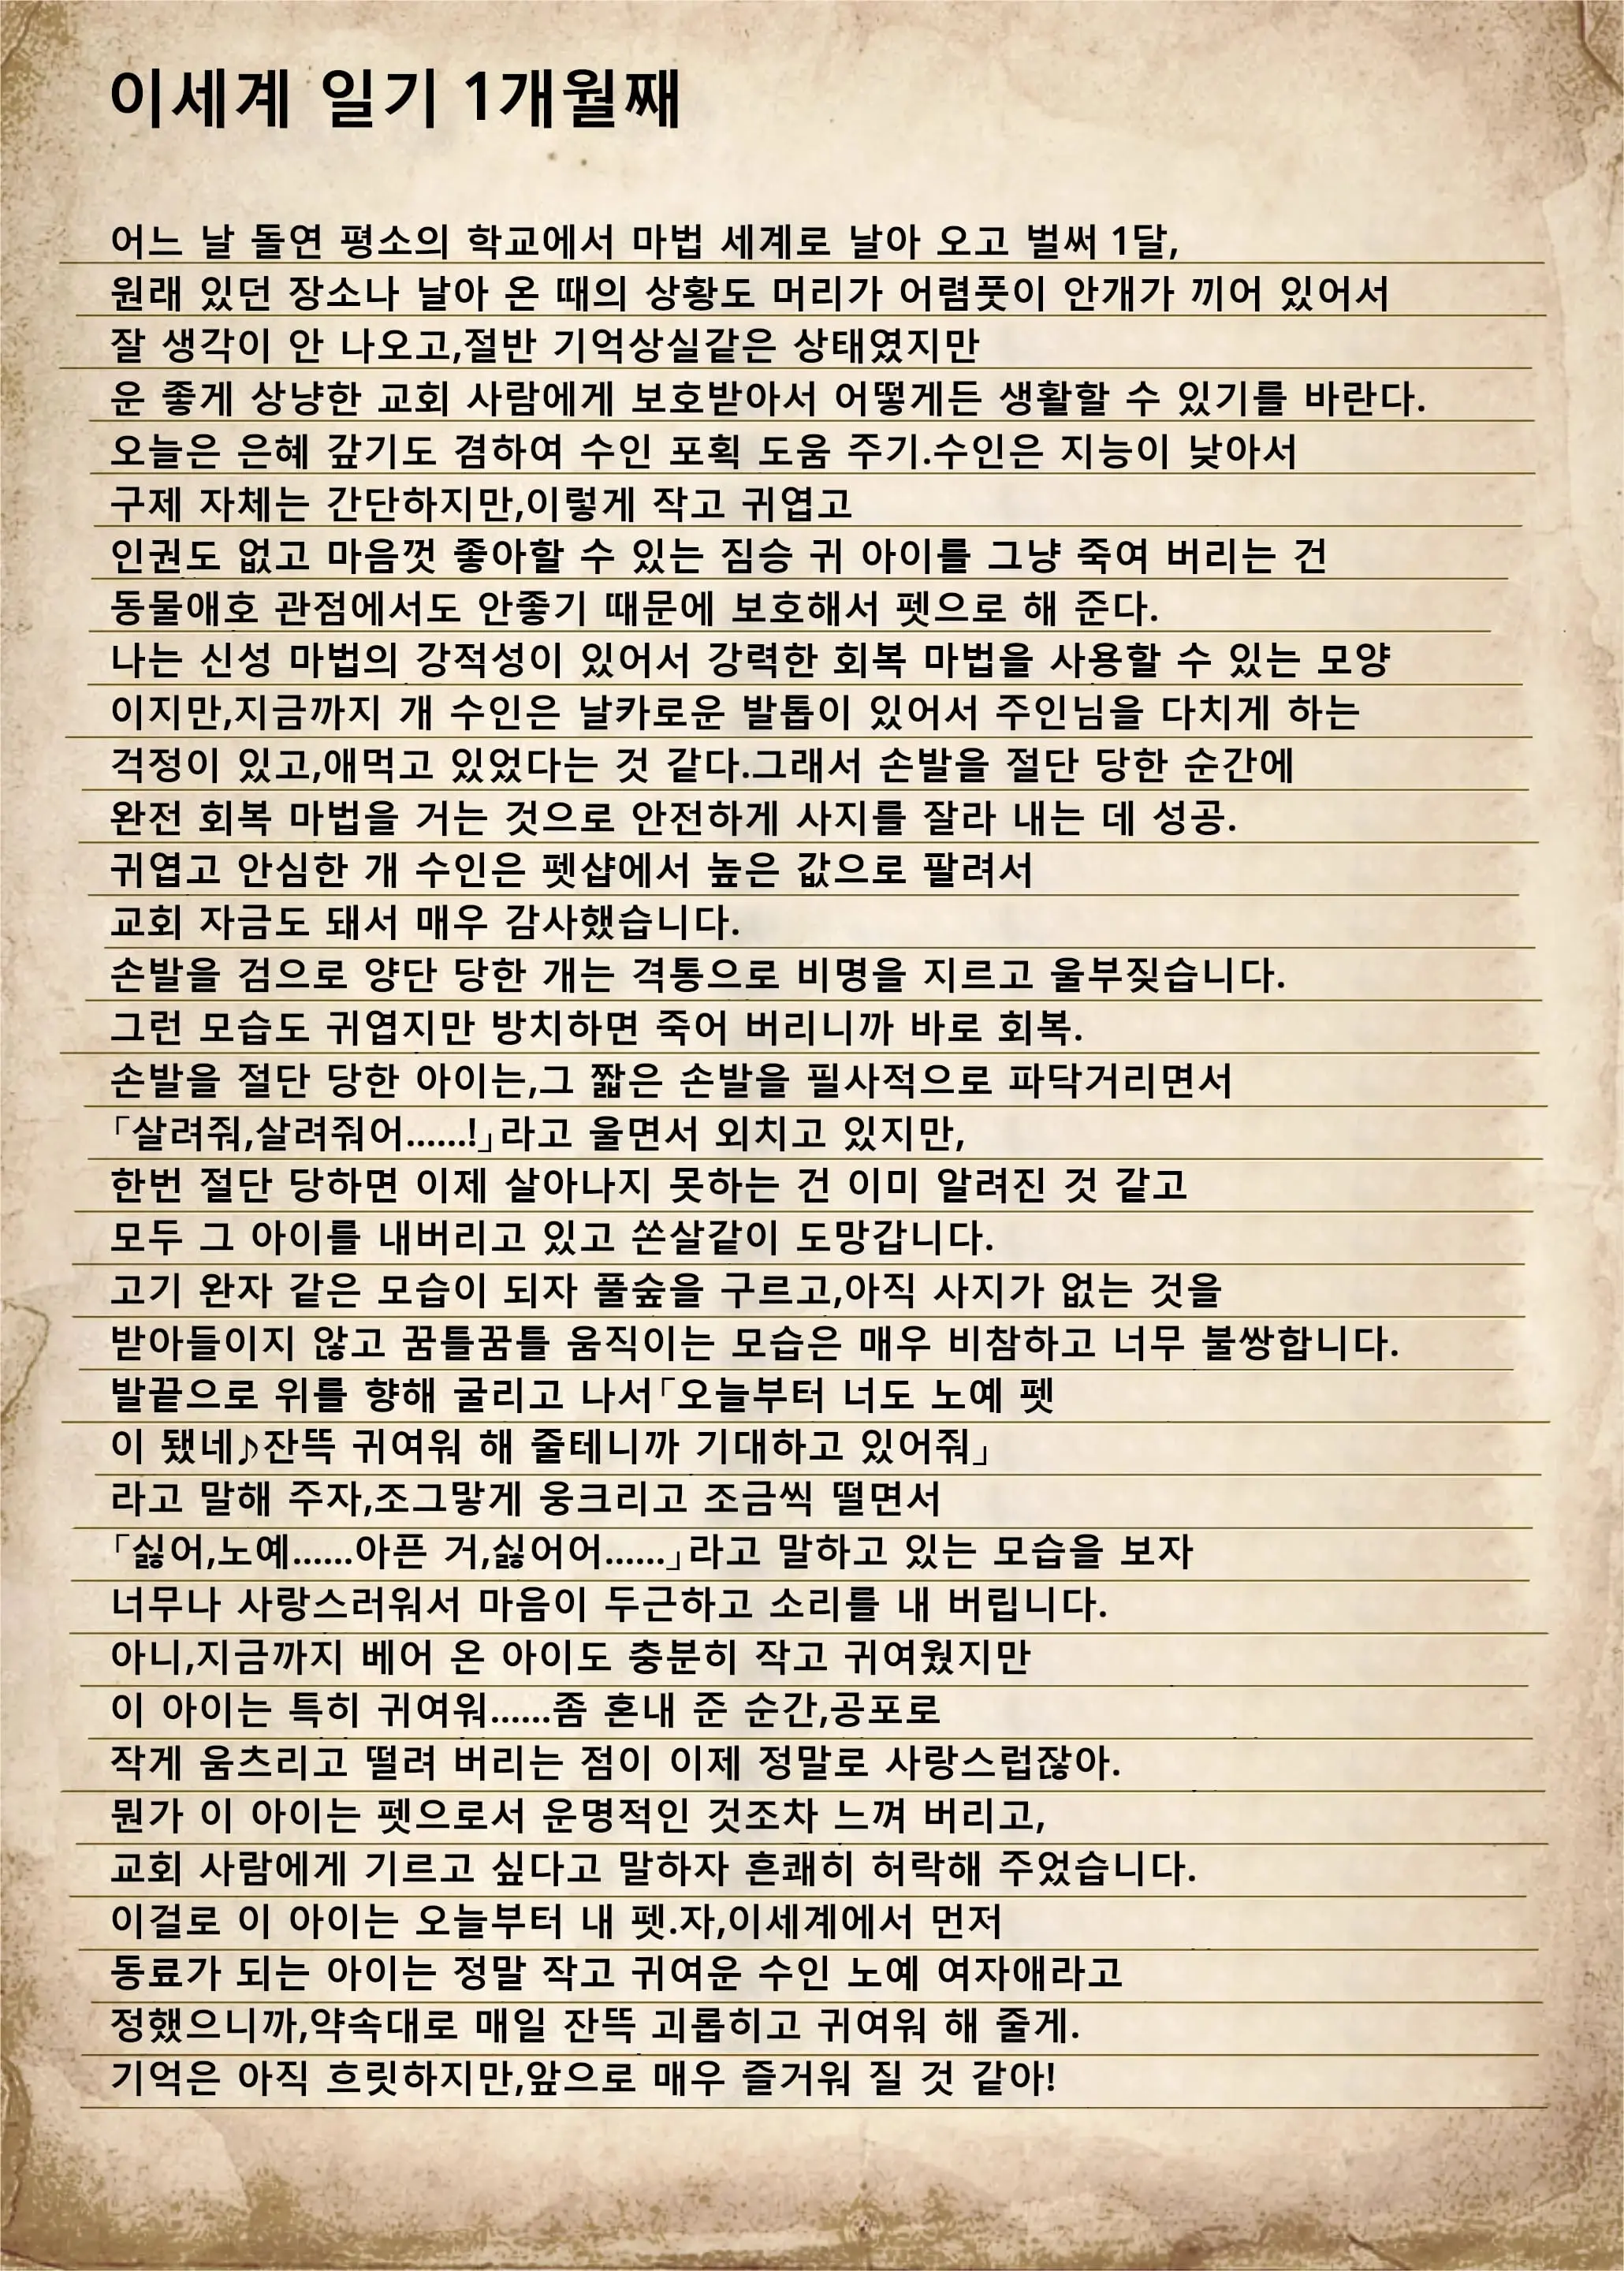 이세계 일기 1개월째
어느 날 돌연 평소의 학교에서 마법 세계로 날아 오고 벌써 1달,
원래 있던 장소나 날아 온 때의 상황도 머리가 어렴풋이 안개가 끼어 있어서
잘 생각이 안 나오고,절반 기억상실같은 상태였지만
운 좋게 상냥한 교회 사람에게 보호받아서 어떻게든 생활할 수 있기를 바란다.
오늘은 은혜 갚기도 겸하여 수인 포획 도움 주기.수인은 지능이 낮아서
구제 자체는 간단하지만,이렇게 작고 귀엽고
인권도 없고 마음껏 좋아할 수 있는 짐승 귀 아이를 그냥 죽여 버리는 건
동물애호 관점에서도 안좋기 때문에 보호해서 펫으로 해 준다.
나는 신성 마법의 강적성이 있어서 강력한 회복 마법을 사용할 수 있는 모양
이지만,지금까지 개 수인은 날카로운 발톱이 있어서 주인님을 다치게 하는
걱정이 있고,애먹고 있었다는 것 같다.그래서 손발을 절단 당한 순간에
완전 회복 마법을 거는 것으로 안전하게 사지를 잘라 내는 데 성공.
귀엽고 안심한 개 수인은 펫샵에서 높은 값으로 팔려서
교회 자금도 돼서 매우 감사했습니다.
손발을 검으로 양단 당한 개는 격통으로 비명을 지르고 울부짖습니다.
그런 모습도 귀엽지만 방치하면 죽어 버리니까 바로 회복.
손발을 절단 당한 아이는,그 짧은 손발을 필사적으로 파닥거리면서
「살려줘,살려줘어......!」라고 울면서 외치고 있지만,
한번 절단 당하면 이제 살아나지 못하는 건 이미 알려진 것 같고
모두 그 아이를 내버리고 있고 쏜살같이 도망갑니다.
고기 완자 같은 모습이 되자 풀숲을 구르고,아직 사지가 없는 것을
받아들이지 않고 꿈틀꿈틀 움직이는 모습은 매우 비참하고 너무 불쌍합니다.
발끝으로 위를 향해 굴리고 나서「오늘부터 너도 노예 펫
이 됐네♪잔뜩 귀여워 해 줄테니까 기대하고 있어줘」
라고 말해 주자,조그맣게 웅크리고 조금씩 떨면서
「싫어,노예......아픈 거,싫어어......」라고 말하고 있는 모습을 보자
너무나 사랑스러워서 마음이 두근하고 소리를 내 버립니다.
아니,지금까지 베어 온 아이도 충분히 작고 귀여웠지만
이 아이는 특히 귀여워......좀 혼내 준 순간,공포로
작게 움츠리고 떨려 버리는 점이 이제 정말로 사랑스럽잖아.
뭔가 이 아이는 펫으로서 운명적인 것조차 느껴 버리고,
교회 사람에게 기르고 싶다고 말하자 흔쾌히 허락해 주었습니다.
이걸로 이 아이는 오늘부터 내 펫.자,이세계에서 먼저
동료가 되는 아이는 정말 작고 귀여운 수인 노예 여자애라고
정했으니까,약속대로 매일 잔뜩 괴롭히고 귀여워 해 줄게.
기억은 아직 흐릿하지만,앞으로 매우 즐거워 질 것 같아!